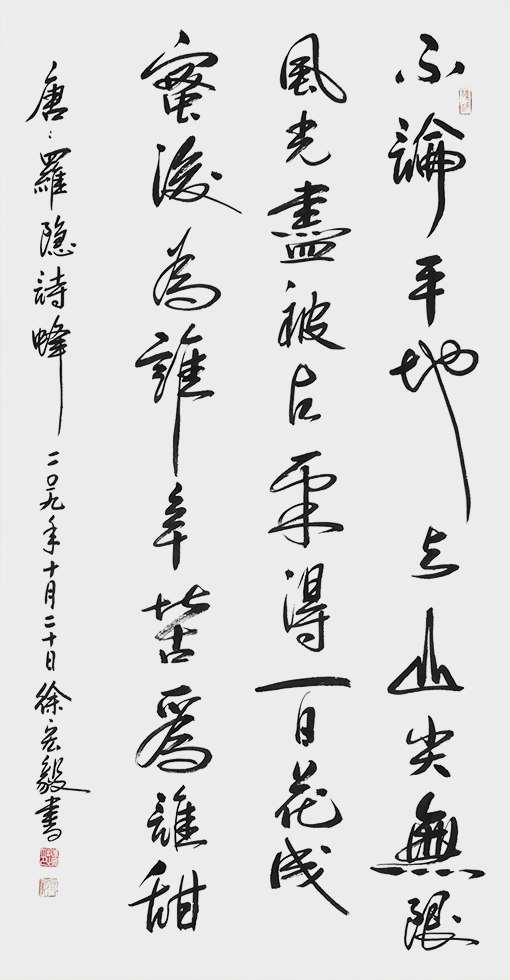 不論平地与山尖無限
風光盡被占采得百花成
蜜後為誰辛苦爲誰甜
唐：羅隐詩蜂 二〇一九年十月二十日徐宏毅書